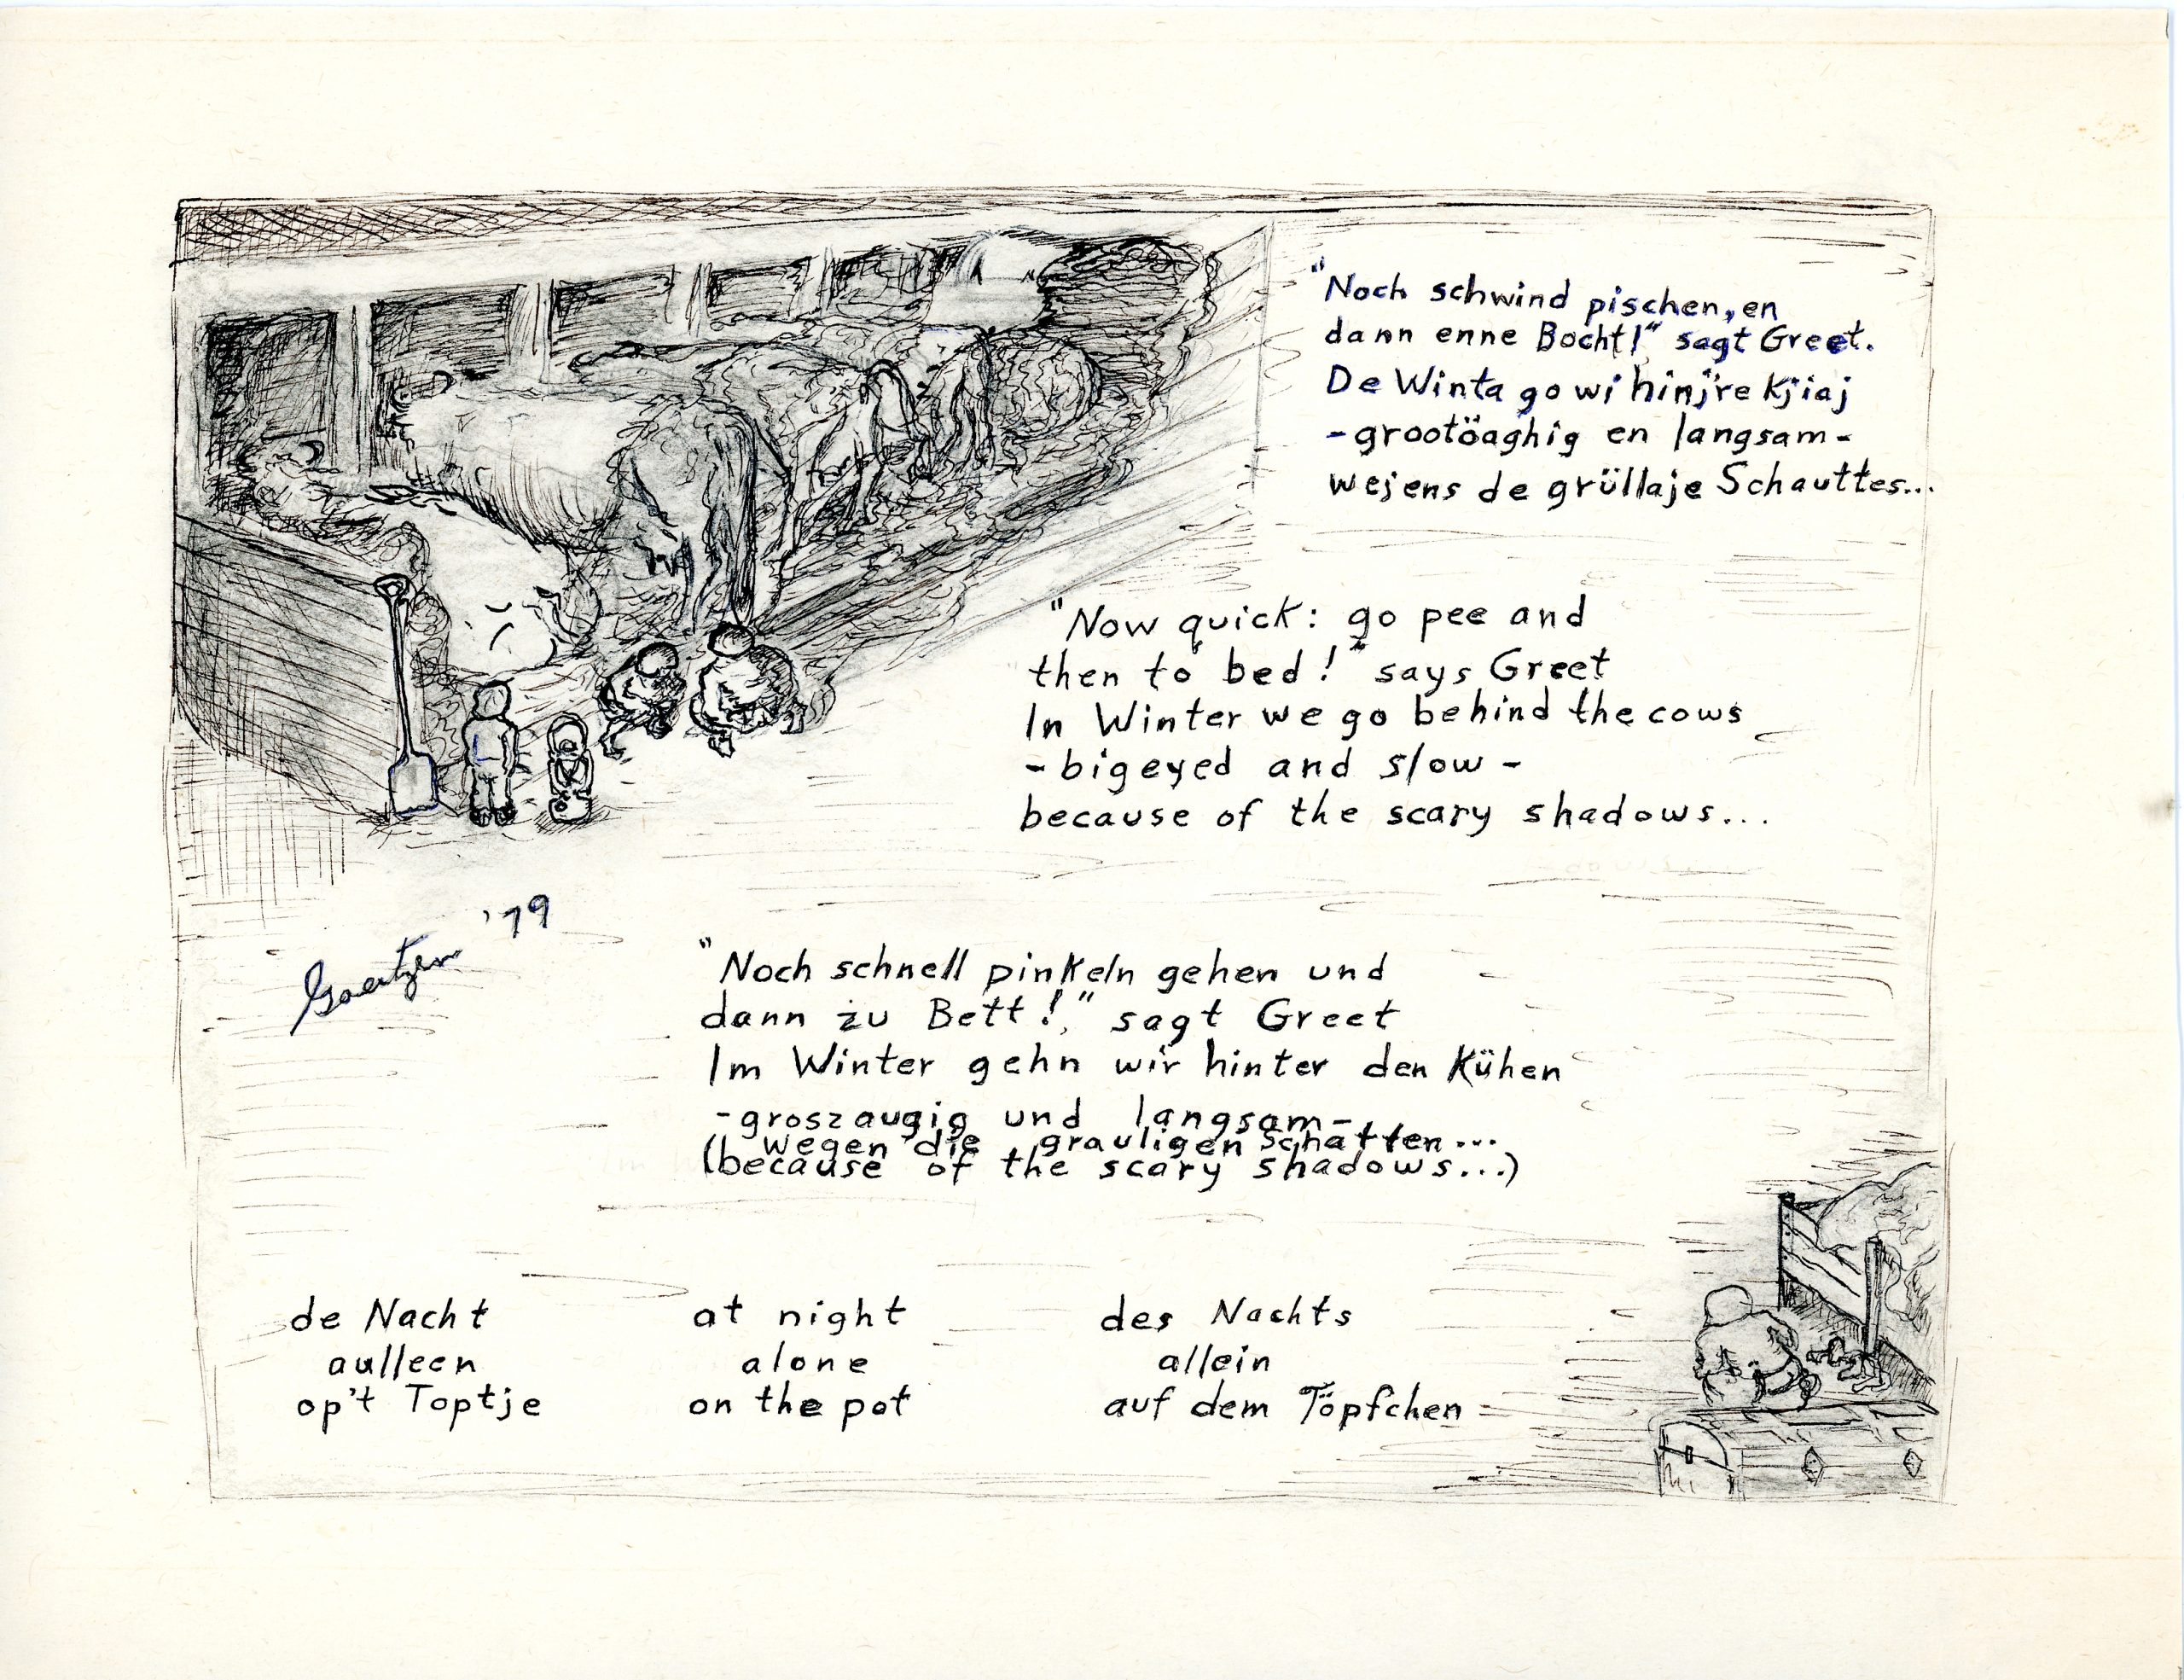 "Noch schwind pischen, en
dann enne Bocht!" sagt Greet.
De Winta go wi hinj're Kjiaj
- grootöaghig en langsam -
wejens de grüllaje Schauttes...
"Now quick: go pee and
then to bed!" says Greet
In Winter we go behind the cows
- bigeyed and slow -
because of the scary shadows...
Goertzen '79
"Noch schnell pinkeln gehen und
dann zu Bett!," sagt Greet
Im Winter gehn wir hinter den Kühen
- groszaugig und langsam -
wegen die grauligen Schatten...
(because of the scary shadows...)
de Nacht
aulleen
op't Toptje
at night
alone
on the pot
des Nachts
allein
auf dem Töpfchen